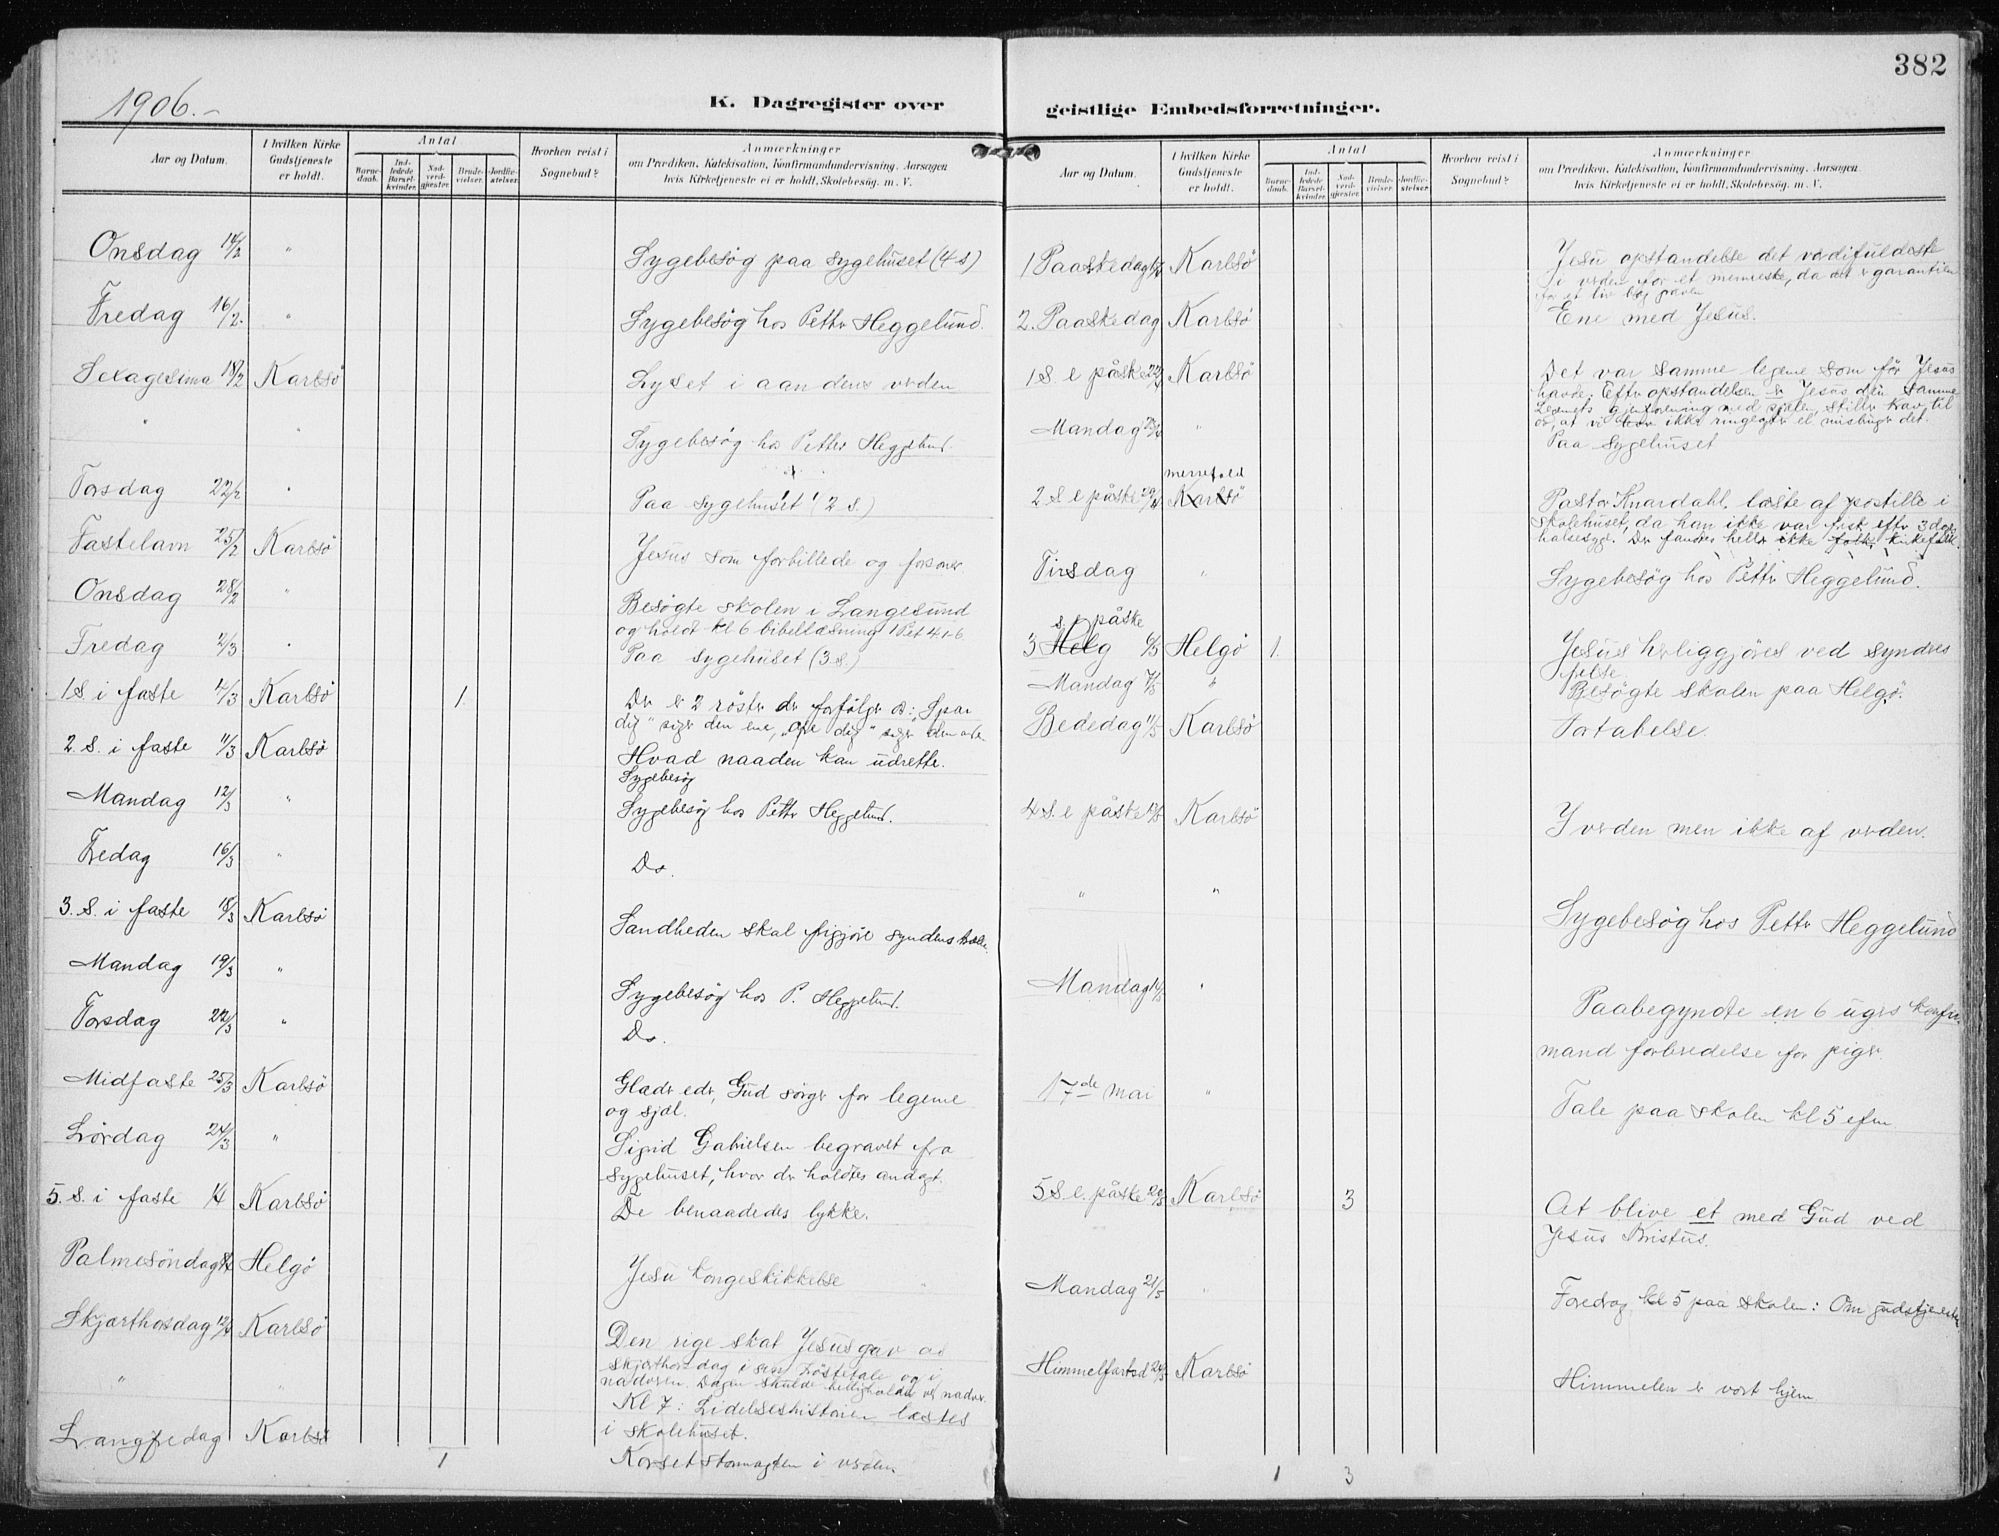 1906.-
K. Dagregister over
Aar og Datum.
I hvilken Kirke Gudstjeneste er holdt.
Antal
Barnedaab.
Indledede Barselkvinder.
Nadverdgjester.
Brudevielser.
Jordfæstelser.
Hvorhen reist i Sognebud?
Anmærkninger
om Prædiken, Katekisation, Konfirmandundervisning, Aarsagen
hvis Kirketjeneste ei er holdt, Skolebesøg m. V.
Onsdag 14/2 " Sygebesøg paa sygehuset (4 s)
Fredag 16/2. " Sygebesøg hos Petter Heggelund.
Sexagesima 18/2 Karlsö Lyset i aandens verden
" " Sygebesøg hos Petter Heggelund.
Torsdag 22/2 " Paa sygehuset (2 s.)
Fastelavn 25/2 Karlsö Jesus som forbillede og forsoner.
Onsdag 28/2 " Besøgte skolen i Langesund
og holdt kl 6 bibellæsning 1 Pet 4 1-6
Fredag 2/3 " Paa sygehuset (3 s.)
1 S. i faste 4/3 Karlsö 1. Der er 2 röster der forfölger os: "Spar
dig" siger den ene, "Giv dig" siger den
2. S. i faste 11/3 Karlsö Hvad naaden kan udrette.
Sygebesøg
Mandag 12/3 " Sygebesøg hos Petter Heggelund.
Fredag 16/3 " Do.
3. S. i faste 18/3 Karlsö Sandheden skal frigjöre syndens
Mandag 19/3 " Sygebesøg hos P. Heggelund.
Torsdag 22/3 " Do.
Midfaste 25/3 Karlsö Glæder eder, Gud sörger for legeme
og sjæl.
Lördag 24/3 " Sigrid Gabrielsen begravet fra
sygehuset, hvor der holdtes andagt.
5. S. i faste 1/4 Karlsö De benaadedes lykke.
Palmesöndag 8/4 Helgö Jesu kongeskikkelse
Skjærthorsdag 12/4 Karlsö Den rige skat Jesus gav os
skjærthorsdag i sin tröstetale og i
nadveren. Dagen skulde helligholdes ved nadver.
" " Kl 7: Lidelseshistorien læstes
i skolehuset.
Langfredag Karlsö Korset stormagten i verden.
1
382
geistlige Embedsforretninger.
Aar og Datum.
I hvilken Kirke Gudstjeneste er holdt.
Antal
Barnedaab.
Indledede Barselkvinder.
Nadverdgjester.
Brudevielser.
Jordfæstelser.
Hvorhen reist i Sognebud?
Anmærkninger
om Prædiken, Katekisation, Konfirmandundervisning, Aarsagen
hvis Kirketjeneste ei er holdt, Skolebesøg m. V.
1 Paaskedag 15/4 Karlsö Jesu opstandelse det værdifuldeste
i verden for et menneske, da det er garantien
for et liv bag graven
2. Paaskedag Karlsö Ene med Jesus.
1 S. e påske 22/4 Karlsö Det var samme legeme som för Jesus
havde. Efter opstandelsen er Jesus den samme
Legemets gjenforening med sjælen, stiller krav til
os, at vi ikke ringeagter el. misbruger det.
Mandag 23/4 " Paa sygehuset
2 S e påske 29/4 messefald Karlsö Pastor Knardahl læste af postille i
skolehuset, da han ikke var frisk efter 3 dages
halsesyge. Der fandtes heller ikke folk kirkefolk.
Tirsdag " Sygebesøg hos Petter Heggelund.
s. e påske
3 Helg 6/5 Helgö 1. Jesus herliggjöres ved synderes
frelse.
Mandag 7/5 " Besøgte skolen paa Helgö.
Bededag 11/5 Karlsö Fortabelse.
4 S. e påske 13/5 Karlsö I verden men ikke af verden.
" " Sygebesøg hos Petter Heggelund
Mandag 14/5 " Paabegyndte en 6 ugers konfir-
mand forberedelse for piger.
17de mai " Tale paa skolen kl 5 efm
5 S. e. påske 20/5 Karlsö 3 At blive et med Gud ved
Jesus Kristus.
Mandag 21/5 " Foredrag kl 5 paa skolen: Om gudstjenesten
Himmelfartsd 24/5 Karlsö Himmelen er vort hjem
1 3